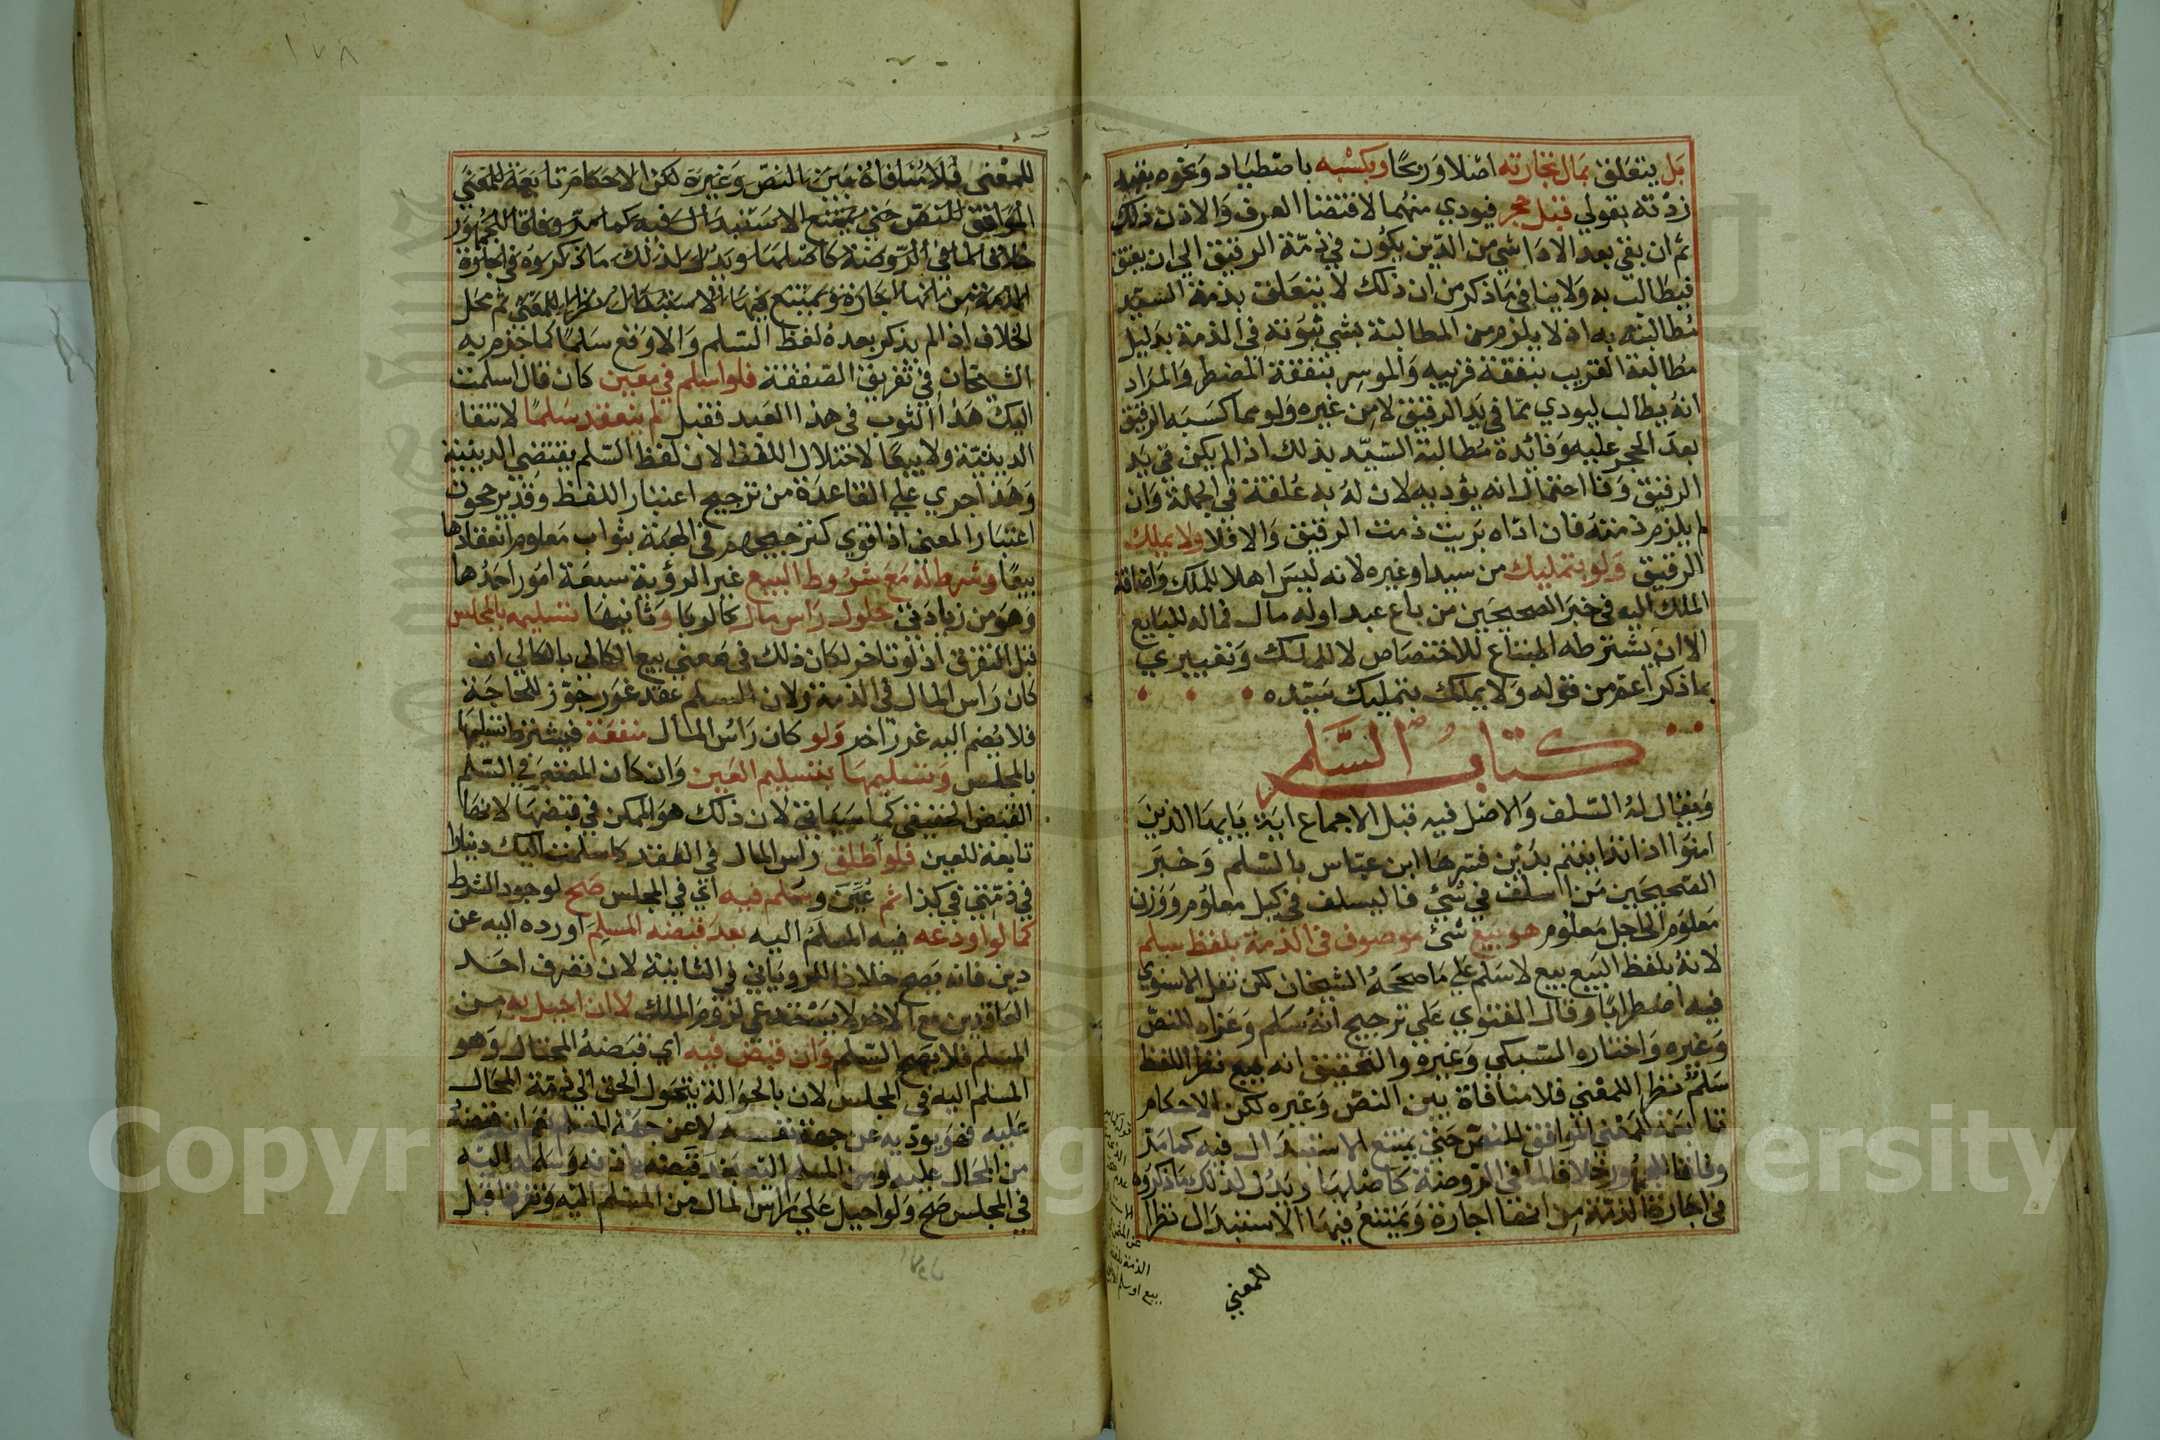 بل يتعلق بمال تجارته اصلا وربحا وبكسبه باصطياد ونحوه بقيد
زدته بقولي قبل حجر فيودي منهما لاقتضا العرف والاذن ذلك
ثم ان بقي بعد الادا شي من الدين يكون في ذمة الرقيق الي ان يعتق
فيطالب به ولا ينافي ما ذكر من ان ذلك لا يتعلق بذمة السيد
مطالبته به اذ لا يلزم من المطالبة بشي ثبوته في الذمة بدليل
مطالبة القريب بنفقة قريبه والموسر بنفقة المضطر والمراد
انه يطالب ليودي مما في يد الرقيق لا من غيره ولو مما كسبه الرقيق
بعد الحجر عليه وفائدة مطالبة السيد بذلك اذا لم يكن في يد
الرقيق وفا احتمال انه يؤديه لان له به علقة في الجملة وان
لم يلزم ذمته فان اداه بريت ذمت الرقيق والا فلا ولا يملك
الرقيق ولو بتمليك من سيد او غيره لانه ليس اهلا للملك واضافة
الملك اليه في خبر الصحيحين من باع عبدا وله مال فماله للبايع
الا ان يشترطه المبتاع للاختصاص لا للملك وتعبيري
بما ذكر اعم من قوله ولا يملك بتمليك سيده
كتاب السلم
ويقال له السلف والاصل فيه قبل الاجماع اية يايها الذين
امنوا اذا تداينتم بدين فسرها ابن عباس بالسلم وخبر
الصحيحين من اسلف في شئ فاليسلف في كيل معلوم ووزن
معلوم الي اجل معلوم هو بيع شئ موصوف في الذمة بلفظ سلم
لانه بلفظ البيع بيع لا سلم علي ما صححه الشيخان لكن نقل الاسنوي
فيه اضطرابا وقال الفتوي علي ترجيح انه سلم وعزاه للنص
وغيره واختاره السبكي وغيره والتحقيق انه بيع نظرا للفظ
سلم نظرا للمعني فلا منافاة بين النص وغيره لكن الاحكام
تابعة للمعني الموافق للنص حتي يمتنع الاستبدال فيه كما مر
وفاقا للجمهور خلافا لما في الروضة كاصلها ويدل لذلك ما ذكروه
في اجارة الذمة من انها اجارة ويمتنع فيها الاستبدال نظرا
للمعني
١٧٨
للمعني فلا منافاة بين النص وغيره لكن الاحكام تابعة للمعني
الموافق للنص حتي يمتنع الاستبدال فيه كما مر وفاقا للجمهور
خلافا لما في الروضة كاصلها ويدل لذلك ما ذكروه في اجارة
الذمة من انها اجارة ويمتنع فيها الاستبدال نظرا للمعني ثم محل
الخلاف اذا لم يذكر بعده لفظ السلم والا وقع سلما كما جزم به
الشيخان في تفريق الصفقة فلو اسلم في معين كان قال اسلمت
اليك هذا الثوب في هذا العبد فقبل لم ينعقد سلما لانتفا
الدينية ولا بيعا لاختلال اللفظ لان لفظ السلم يقتضي الدينية
وهذا جري علي القاعدة من ترجيح اعتبار اللفظ وقد يرجحون
اعتبار المعني اذا قوي كترجيحهم في الهبة بثواب معلوم انعقادها
بيعا وشرط له مع شروط البيع غير الرؤية سبعة امور احدها
وهو من زيادتي حلول راس مال كالربا وثانيها تسليمه بالمجلس
قبل التفرق اذ لو تاخر لكان ذلك في معني بيع الكالي بالكالي ان
كان راس المال في الذمة ولان السلم عقد غرر جوز للحاجة
فلا يضم اليه غرر اخر ولو كان راس المال منفعة فيشترط تسليمها
بالمجلس وتسليمها بتسليم العين وان كان المعتبر في السلم
القبض الحقيقي كما سياتي لان ذلك هو الممكن في قبضها لانها
تابعة للعين فلو اطلق راس المال في العقد كاسلمت اليك دينارا
في ذمتي في كذا ثم عين وسلم فيه اي في المجلس صح لوجود الشرط
كما لو اودعه فيه المسلم اليه بعد قبضه المسلم او رده اليه عن
دين فانه يصح خلافا للروياني في الثانية لان تصرف احد
العاقدين مع الاخر لا يستدعي لزوم الملك لا ان احيل به من
المسلم فلا يصح السلم وان قبض فيه اي قبضه المحتال وهو
المسلم اليه في المجلس لان بالحوالة يتحول الحق الي ذمة المحال
عليه فهو يوديه عن جهة نفسه لا عن جهة المسلم نعم ان قبضه
من المحال عليه او من المسلم اليه بعد قبضه باذنه وسلمه اليه
في المجلس صح ولو احيل علي راس المال من المسلم اليه وتفرقا قبل